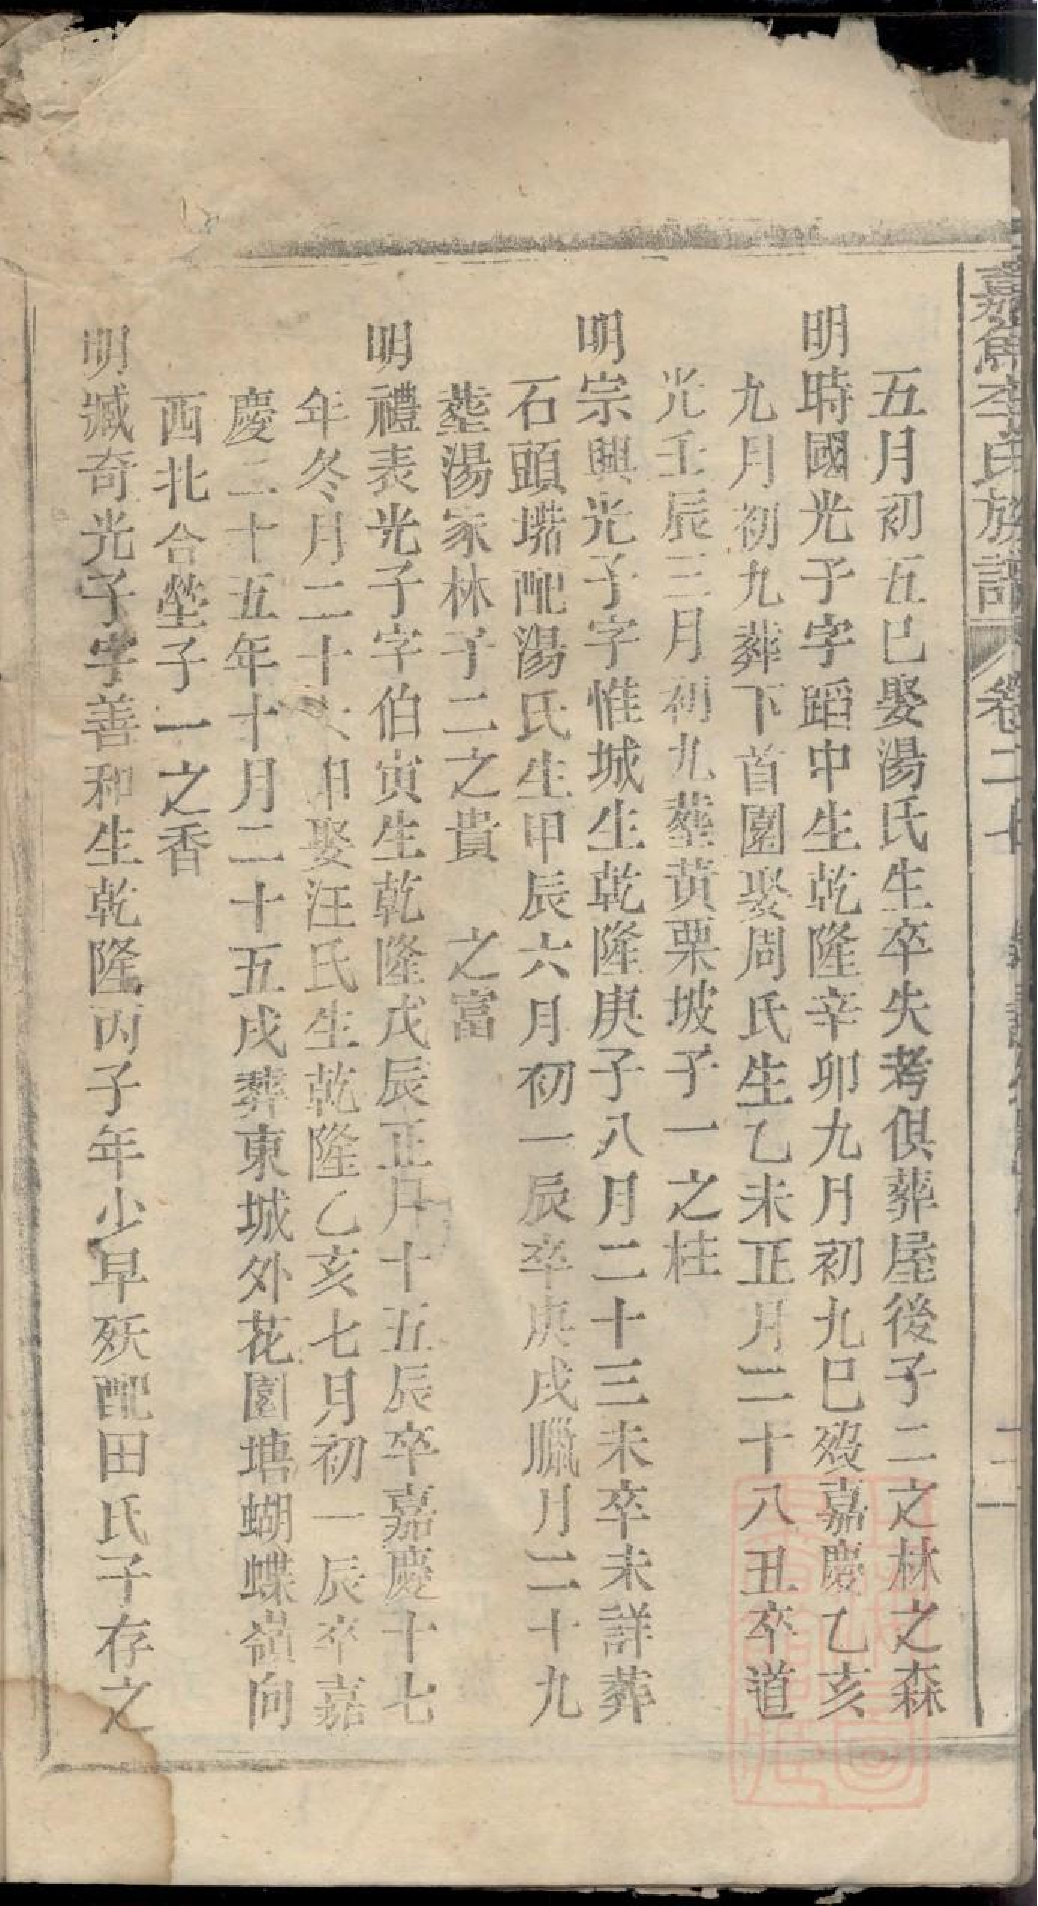 嘉魚李氏族譜 卷二十
五月初五巳娶湯氏生卒失考俱葬屋後子二之林之森
明時國光子字蹈中生乾隆辛卯九月初九巳歿嘉慶乙亥
九月初九葬下首園娶周氏生乙未正月二十八丑卒道
光壬辰三月初九葬黃栗坡子一之桂
明宗興光子字惟城生乾隆庚子八月二十三未卒未詳葬
石頭㙮配湯氏生甲辰六月初一辰卒庚戌臘月二十九
葬湯家林子二之貴 之富
明禮表光子字伯寅生乾隆戊辰正月十五辰卒嘉慶十七
年冬月二十娶汪氏生乾隆乙亥七月初一辰卒嘉
慶二十五年十月二十五戌葬東城外花園塘蝴蝶嶺向
西北合塋子一之香
明臧奇光子字善和生乾隆丙子年少早殀配田氏子存之